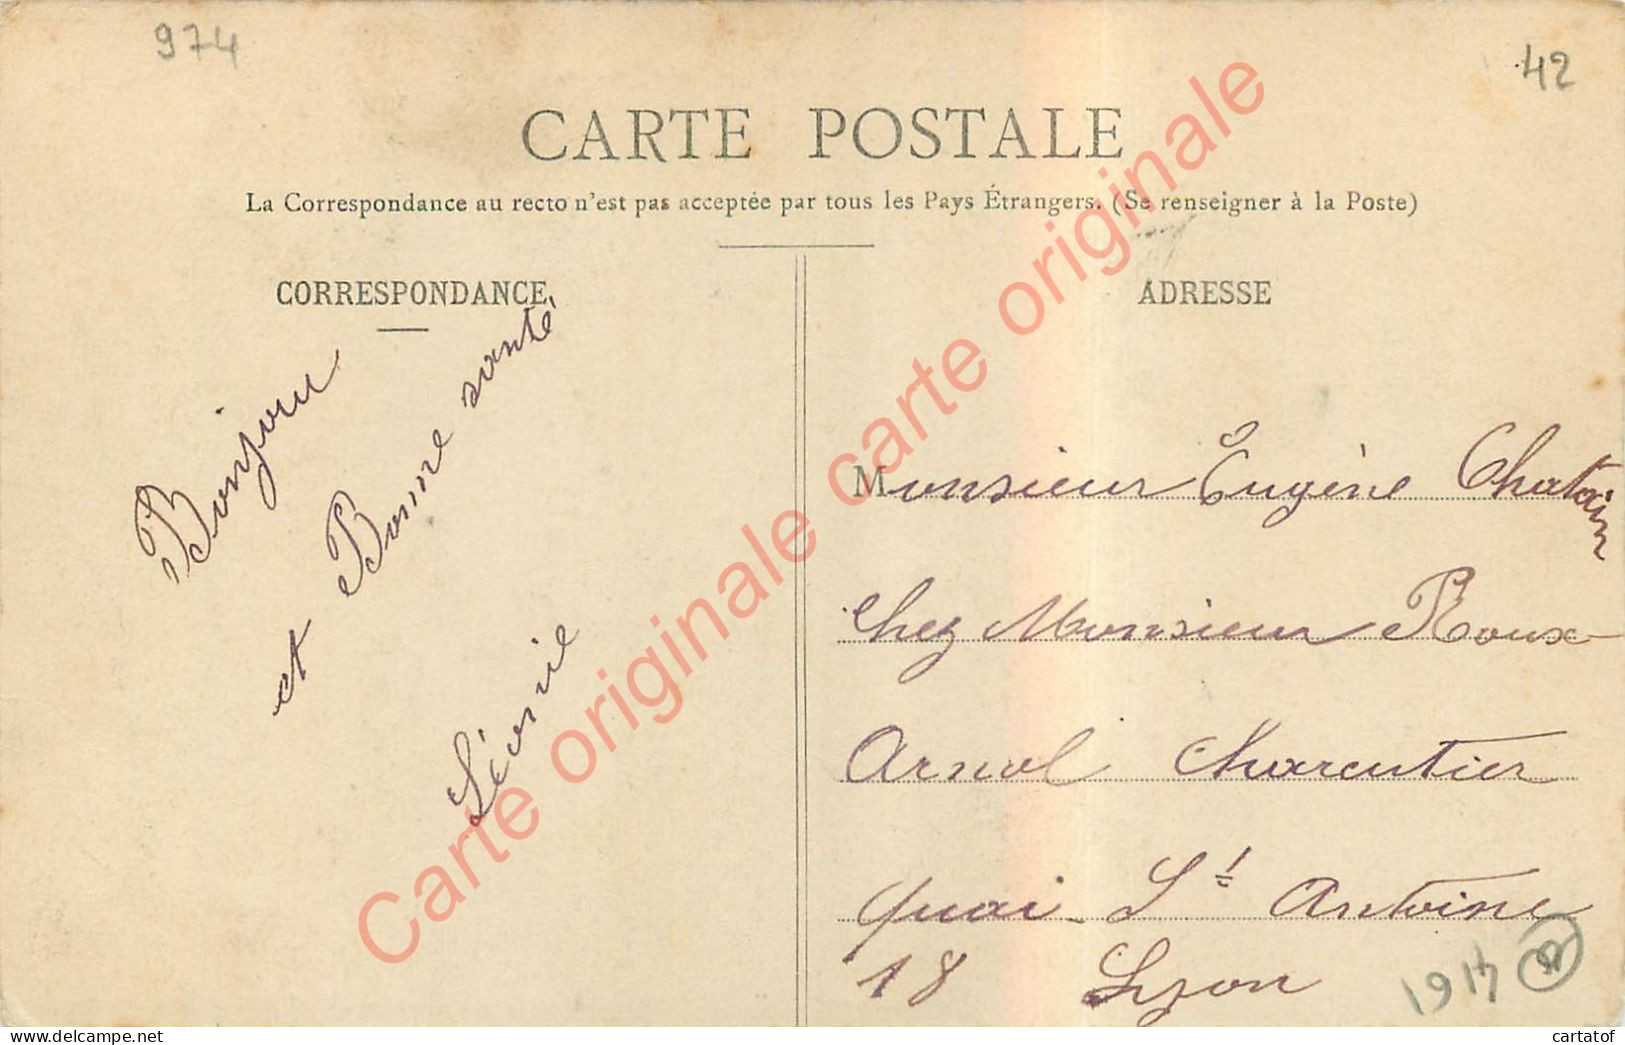 974
42
CARTE POSTALE
La Correspondance au recto n'est pas acceptée par tous les Pays Étrangers. (Se renseigner à la Poste)
CORRESPONDANCE
Bonjour
et Bonne santé
Léonie
ADRESSE
Monsieur Eugène Chatain
chez Monsieur Roux-
Arnol Charcutier
quai St Antoine
18 Lyon
1914
Carte originale carte originale
cartatof